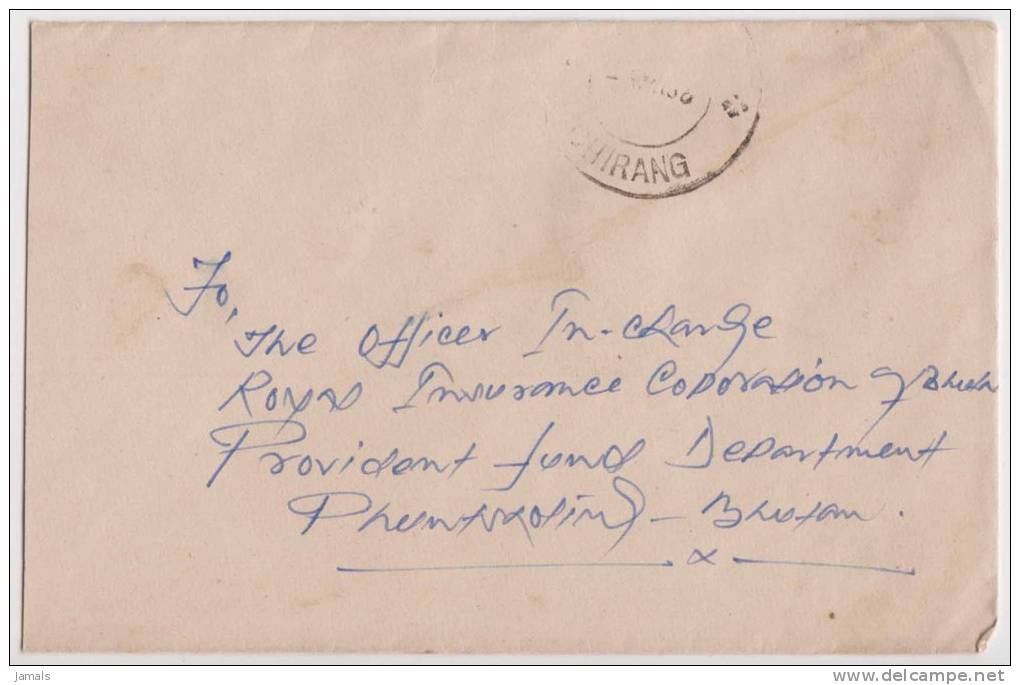 CHIRANG
To,
The Officer In-charge
Royal Insurance Coporation of Bhutan
Provident fund Department
Phuntsholing - Bhutan.
x
Jamals
delcampe.net